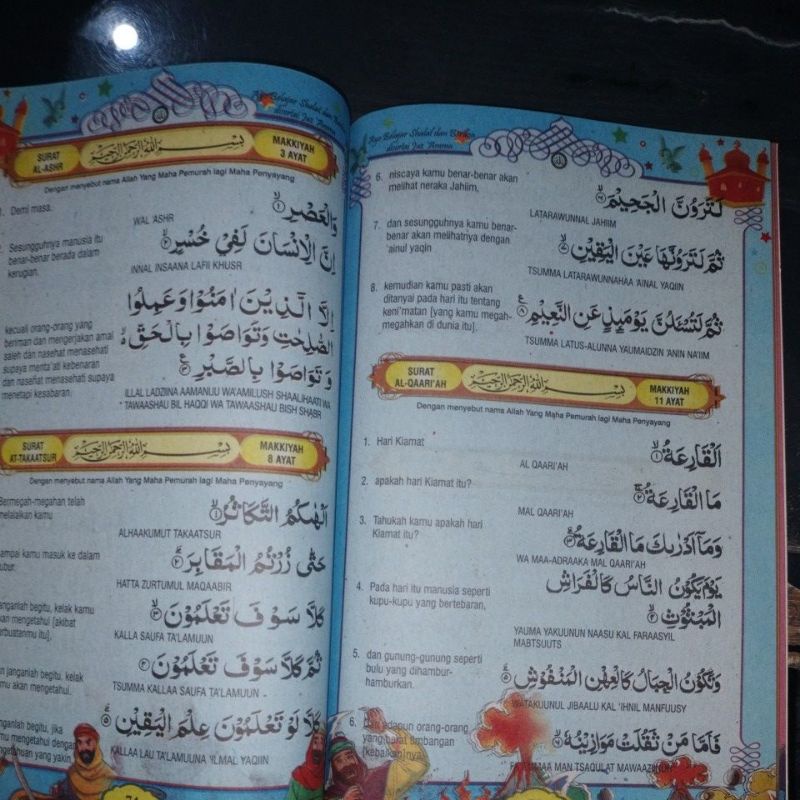 Ayo Belajar Shalat dan
disertai Juz 'Amma
SURAT
AL-ASHR
بِسْمِ اللهِ الرَّحْمٰنِ الرَّحِيْمِ
MAKKIYAH
3 AYAT
Dengan menyebut nama Allah Yang Maha Pemurah lagi Maha Penyayang
1. Demi masa.
وَالْعَصْرِ ۙ ١
WAL 'ASHR
Sesungguhnya manusia itu
benar-benar berada dalam
kerugian.
اِنَّ الْاِنْسَانَ لَفِيْ خُسْرٍ ۙ ٢
INNAL INSAANA LAFII KHUSR
kecuali orang-orang yang
beriman dan mengerjakan amal
saleh dan nasehat menasehati
supaya menta'ati kebenaran
dan nasehat menasehati supaya
menetapi kesabaran.
اِلَّا الَّذِيْنَ اٰمَنُوْا وَعَمِلُوا
الصّٰلِحٰتِ وَتَوَاصَوْا بِالْحَقِّ ۙ
وَتَوَاصَوْا بِالصَّبْرِ ٣
ILLAL LADZIINA AAMANUU WA'AMILUSH SHAALIHAATI WA
TAWAASHAU BIL HAQQI WA TAWAASHAU BISH SHABR
SURAT
AT-TAKAATSUR
بِسْمِ اللهِ الرَّحْمٰنِ الرَّحِيْمِ
MAKKIYAH
8 AYAT
Dengan menyebut nama Allah Yang Maha Pemurah lagi Maha Penyayang
Bermegah-megahan telah
melalaikan kamu
اَلْهٰىكُمُ التَّكَاثُرُ ۙ ١
ALHAAKUMUT TAKAATSUR
sampai kamu masuk ke dalam
kubur.
حَتّٰى زُرْتُمُ الْمَقَابِرَ ۗ ٢
HATTA ZURTUMUL MAQAABIR
janganlah begitu, kelak kamu
akan mengetahui [akibat
perbuatanmu itu].
كَلَّا سَوْفَ تَعْلَمُوْنَ ۙ ٣
KALLA SAUFA TA'LAMUUN
dan janganlah begitu, kelak
kamu akan mengetahui.
ثُمَّ كَلَّا سَوْفَ تَعْلَمُوْنَ ۗ ٤
TSUMMA KALLAA SAUFA TA'LAMUUN
Janganlah begitu, jika
kamu mengetahui dengan
pengetahuan yang yakin
كَلَّا لَوْ تَعْلَمُوْنَ عِلْمَ الْيَقِيْنِ ۗ ٥
KALLAA LAU TA'LAMUUNA 'ILMAL YAQIIN
Ayo Belajar Shalat dan Berdoa
disertai Juz 'Amma
6. niscaya kamu benar-benar akan
melihat neraka Jahiim,
لَتَرَوُنَّ الْجَحِيْمَ ۙ ٦
LATARAWUNNAL JAHIIM
7. dan sesungguhnya kamu benar-
benar akan melihatnya dengan
'ainul yaqin
ثُمَّ لَتَرَوُنَّهَا عَيْنَ الْيَقِيْنِ ۙ ٧
TSUMMA LATARAWUNNAHAA 'AINAL YAQIIN
8. kemudian kamu pasti akan
ditanyai pada hari itu tentang
keni'matan [yang kamu megah-
megahkan di dunia itu].
ثُمَّ لَتُسْـَٔلُنَّ يَوْمَىِٕذٍ عَنِ النَّعِيْمِ ٨
TSUMMA LATUS-ALUNNA YAUMAIDZIN 'ANIN NA'IIM
SURAT
AL-QAARI'AH
بِسْمِ اللهِ الرَّحْمٰنِ الرَّحِيْمِ
MAKKIYAH
11 AYAT
Dengan menyebut nama Allah Yang Maha Pemurah lagi Maha Penyayang
1. Hari Kiamat
اَلْقَارِعَةُ ۙ ١
AL QAARI'AH
2. apakah hari Kiamat itu?
مَا الْقَارِعَةُ ۚ ٢
MAL QAARI'AH
3. Tahukah kamu apakah hari
Kiamat itu?
وَمَآ اَدْرٰىكَ مَا الْقَارِعَةُ ۗ ٣
WA MAA-ADRAAKA MAL QAARI'AH
4. Pada hari itu manusia seperti
kupu-kupu yang bertebaran,
يَوْمَ يَكُوْنُ النَّاسُ كَالْفَرَاشِ
الْمَبْثُوْثِ ۙ ٤
YAUMA YAKUUNUN NAASU KAL FARAASYIL
MABTSUUTS
5. dan gunung-gunung seperti
bulu yang dihambur-
hamburkan.
وَتَكُوْنُ الْجِبَالُ كَالْعِهْنِ الْمَنْفُوْشِ ۗ ٥
WATAKUUNUL JIBAALU KAL 'IHNIL MANFUUSY
6. Dan adapun orang-orang
yang berat timbangan
[kebaikan]nya,
فَاَمَّا مَنْ ثَقُلَتْ مَوَازِيْنُهٗ ۙ ٦
FA AMMAA MAN TSAQULAT MAWAAZIINUH